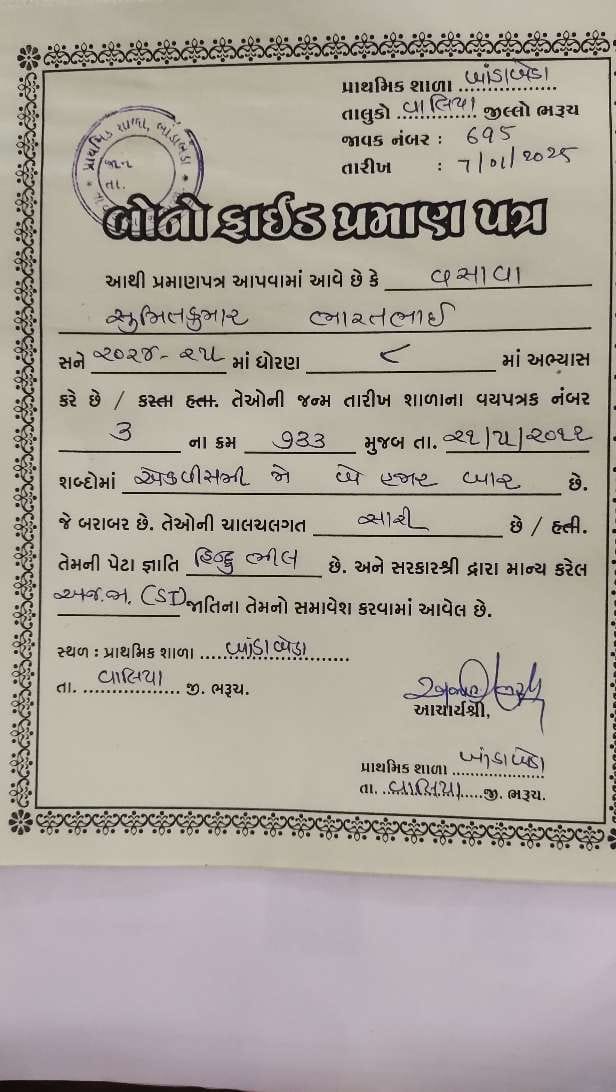 પ્રાથમિક શાળા બાંડાબેડા
તાલુકો વાલિયા જીલ્લો ભરૂચ
જાવક નંબર : 695
તારીખ : 7/01/2025
પ્રાથમિક શાળા, બાંડાબેડા
જા.નં.
તા.
બોનોફાઈડ પ્રમાણ પત્ર
આથી પ્રમાણપત્ર આપવામાં આવે છે કે વસાવા
સુમિતકુમાર ભારતભાઈ
સને ૨૦૨૪-૨૫ માં ધોરણ ૮ માં અભ્યાસ
કરે છે / કરતા હતા. તેઓની જન્મ તારીખ શાળાના વયપત્રક નંબર
3 ના ક્રમ 933 મુજબ તા. ૨૧/૫/૨૦૧૨
શબ્દોમાં એકવીસમી મે બે હજાર બાર છે.
જે બરાબર છે. તેઓની ચાલચલગત સારી છે / હતી.
તેમની પેટા જ્ઞાતિ હિન્દુ ભીલ છે. અને સરકારશ્રી દ્વારા માન્ય કરેલ
અ.જ.જા. (ST) જાતિના તેમનો સમાવેશ કરવામાં આવેલ છે.
સ્થળ : પ્રાથમિક શાળા બાંડાબેડા
તા. વાલિયા જી. ભરૂચ.
આચાર્યશ્રી,
પ્રાથમિક શાળા બાંડાબેડા
તા. વાલિયા જી. ભરૂચ.